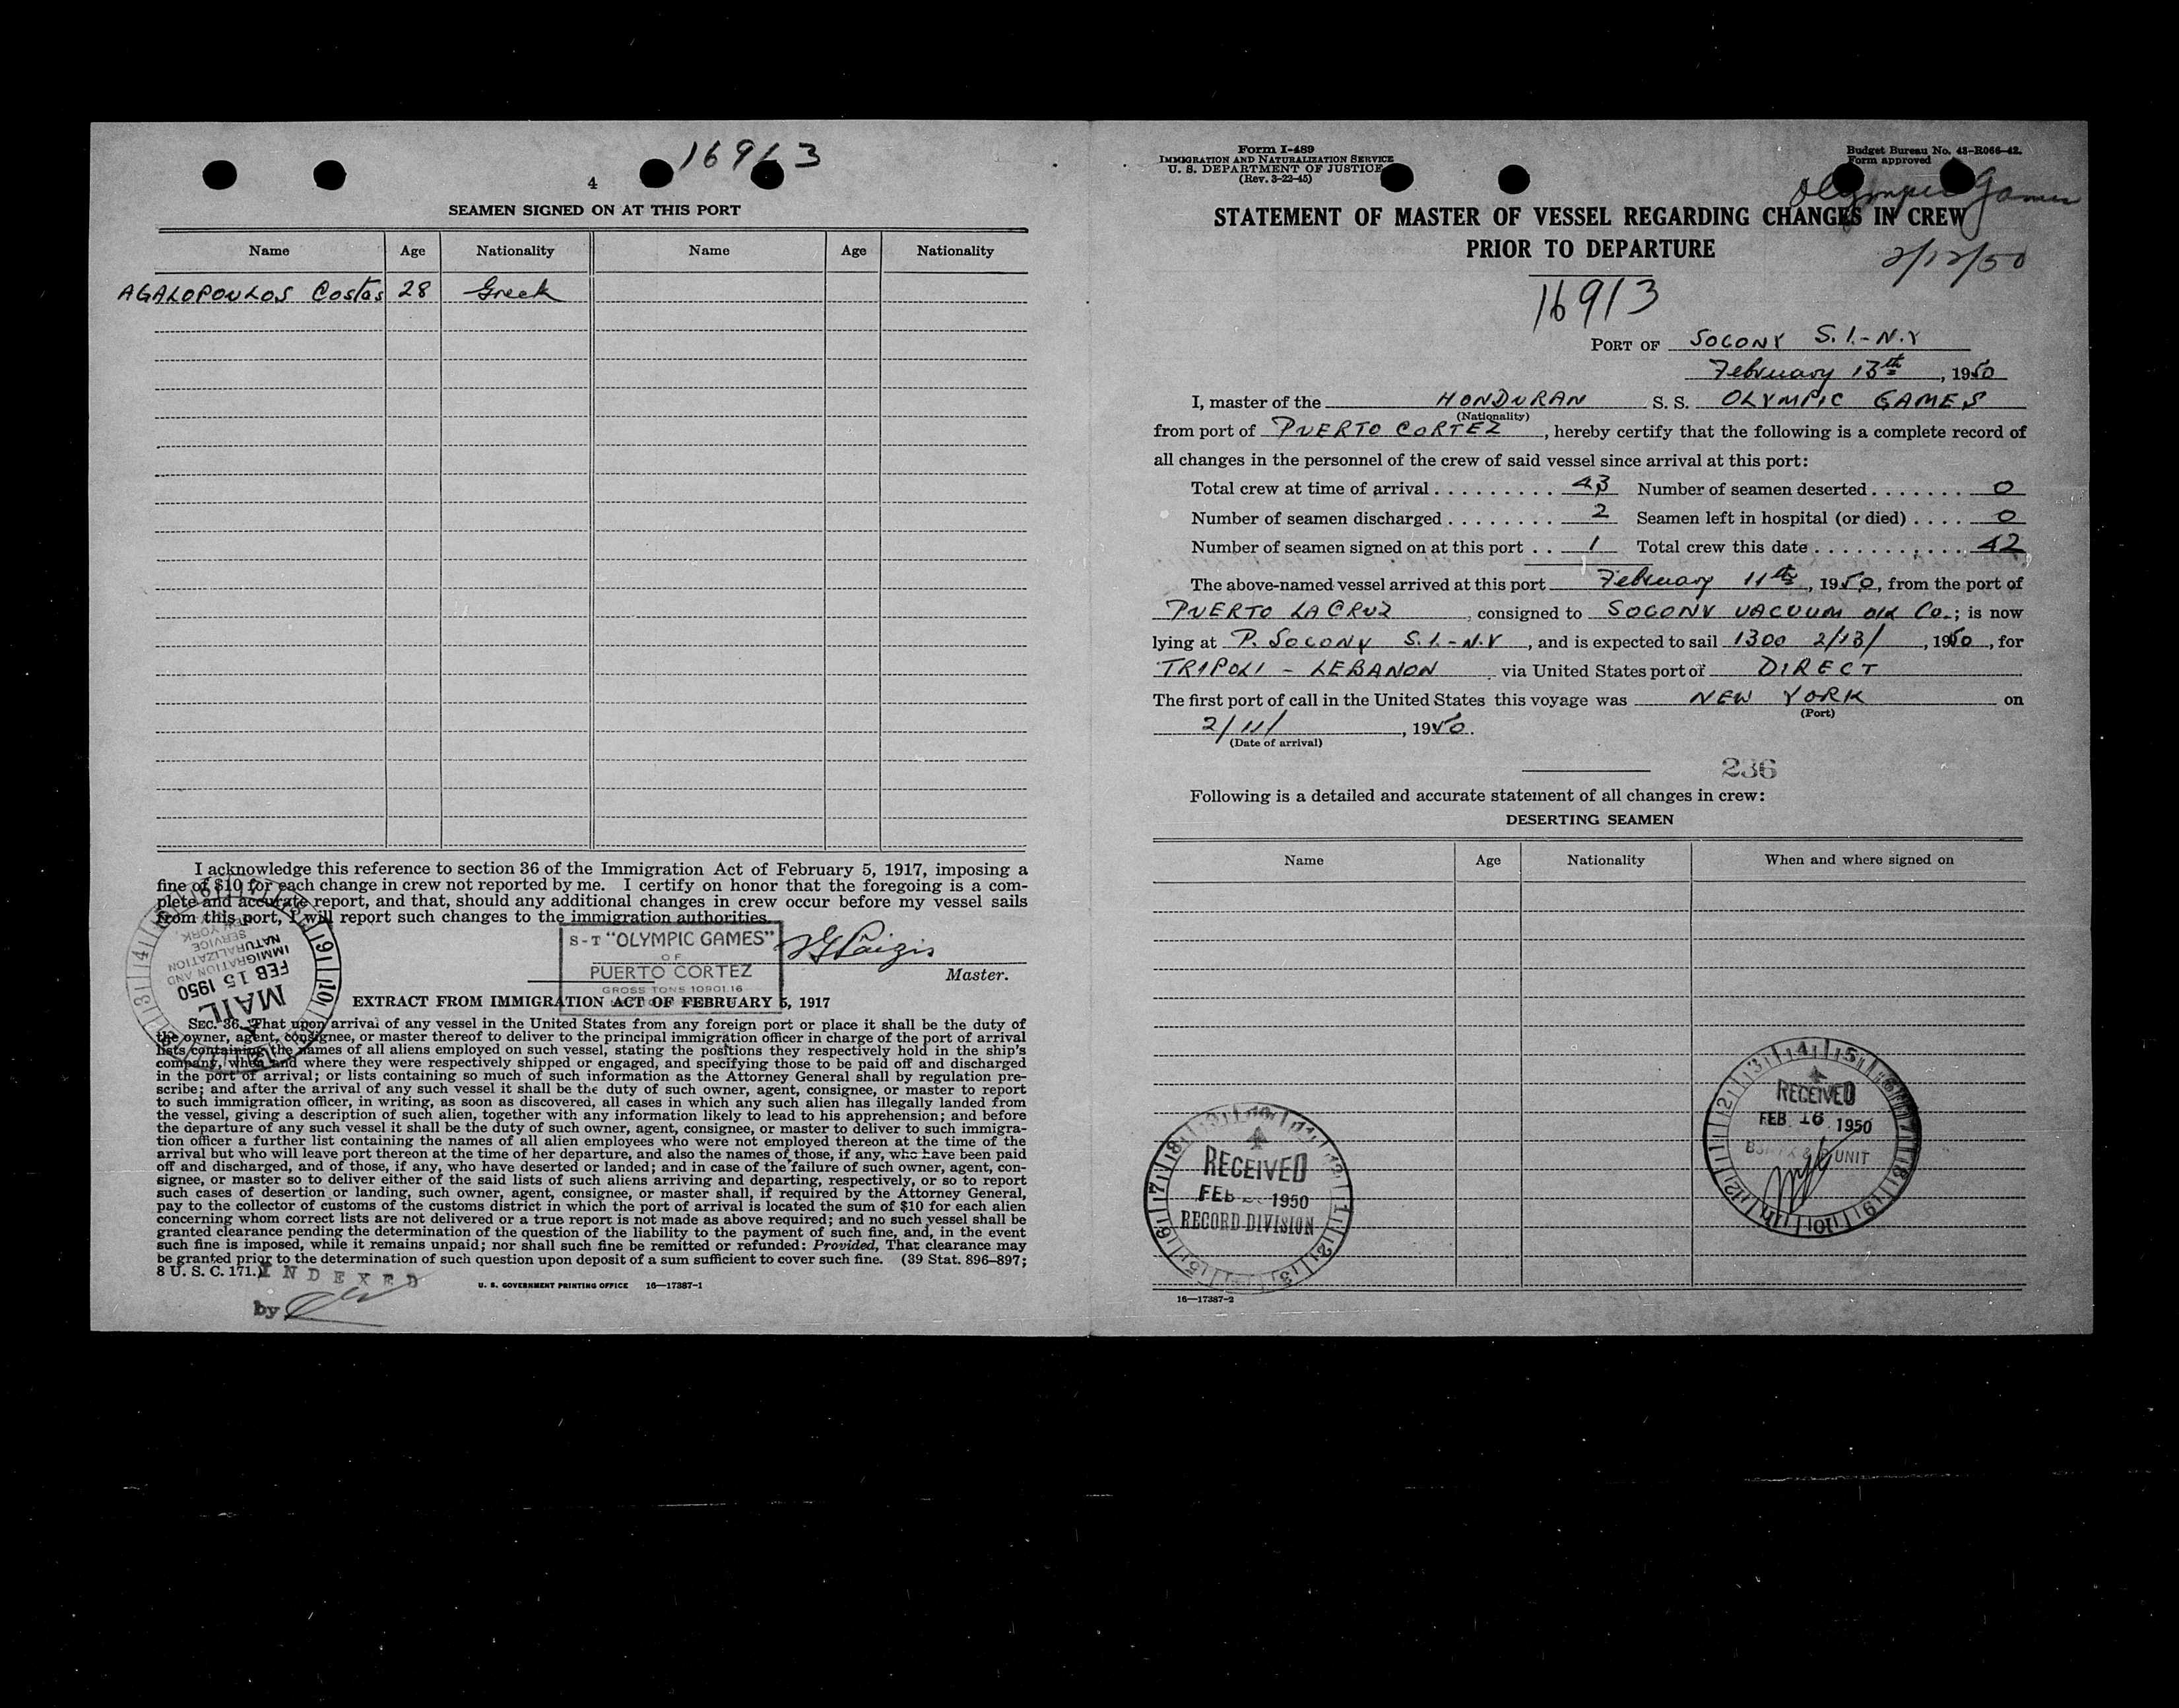 16913
4
SEAMEN SIGNED ON AT THIS PORT
Name Age Nationality Name Age Nationality
AGALOPOULOS Costas 28 Greek
I acknowledge this reference to section 36 of the Immigration Act of February 5, 1917, imposing a
fine of $10 for each change in crew not reported by me. I certify on honor that the foregoing is a com-
plete and accurate report, and that, should any additional changes in crew occur before my vessel sails
from this port, I will report such changes to the immigration authorities.
S-T "OLYMPIC GAMES"
OF
PUERTO CORTEZ
GROSS TONS 10901.16
Master.
MAIL
FEB 15 1950
IMMIGRATION AND
NATURALIZATION
SERVICE
NEW YORK
EXTRACT FROM IMMIGRATION ACT OF FEBRUARY 5, 1917
SEC. 36. That upon arrival of any vessel in the United States from any foreign port or place it shall be the duty of
the owner, agent, consignee, or master thereof to deliver to the principal immigration officer in charge of the port of arrival
lists containing the names of all aliens employed on such vessel, stating the positions they respectively hold in the ship's
company, when and where they were respectively shipped or engaged, and specifying those to be paid off and discharged
in the port of arrival; or lists containing so much of such information as the Attorney General shall by regulation pre-
scribe; and after the arrival of any such vessel it shall be the duty of such owner, agent, consignee, or master to report
to such immigration officer, in writing, as soon as discovered, all cases in which any such alien has illegally landed from
the vessel, giving a description of such alien, together with any information likely to lead to his apprehension; and before
the departure of any such vessel it shall be the duty of such owner, agent, consignee, or master to deliver to such immigra-
tion officer a further list containing the names of all alien employees who were not employed thereon at the time of the
arrival but who will leave port thereon at the time of her departure, and also the names of those, if any, who have been paid
off and discharged, and of those, if any, who have deserted or landed; and in case of the failure of such owner, agent, con-
signee, or master so to deliver either of the said lists of such aliens arriving and departing, respectively, or so to report
such cases of desertion or landing, such owner, agent, consignee, or master shall, if required by the Attorney General,
pay to the collector of customs of the customs district in which the port of arrival is located the sum of $10 for each alien
concerning whom correct lists are not delivered or a true report is not made as above required; and no such vessel shall be
granted clearance pending the determination of the question of the liability to the payment of such fine, and, in the event
such fine is imposed, while it remains unpaid; nor shall such fine be remitted or refunded: Provided, That clearance may
be granted prior to the determination of such question upon deposit of a sum sufficient to cover such fine. (39 Stat. 896–897;
8 U. S. C. 171.)
INDEXED
by
U. S. GOVERNMENT PRINTING OFFICE 16—17387-1
Form I-489
IMMIGRATION AND NATURALIZATION SERVICE
U. S. DEPARTMENT OF JUSTICE
(Rev. 3-22-45)
Budget Bureau No. 43-R066-42.
Form approved
Olympic Games
STATEMENT OF MASTER OF VESSEL REGARDING CHANGES IN CREW
PRIOR TO DEPARTURE
2/12/50
16913
PORT OF SOCONY S.I.-N.Y
February 13th, 1950
I, master of the HONDURAN S. S. OLYMPIC GAMES
(Nationality)
from port of PUERTO CORTEZ, hereby certify that the following is a complete record of
all changes in the personnel of the crew of said vessel since arrival at this port:
Total crew at time of arrival 43 Number of seamen deserted 0
Number of seamen discharged 2 Seamen left in hospital (or died) 0
Number of seamen signed on at this port 1 Total crew this date 42
The above-named vessel arrived at this port February 11th, 1950, from the port of
PUERTO LA CRUZ, consigned to SOCONY VACUUM OIL Co.; is now
lying at P. SOCONY S.I.-N.Y, and is expected to sail 1300 2/13/, 1950, for
TRIPOLI - LEBANON via United States port of DIRECT
The first port of call in the United States this voyage was NEW YORK on
(Port)
2/11/, 1950.
(Date of arrival)
236
Following is a detailed and accurate statement of all changes in crew:
DESERTING SEAMEN
Name Age Nationality When and where signed on
RECEIVED
FEB 16 1950
UNIT
RECEIVED
FEB 1950
RECORD DIVISION
16—17387-2